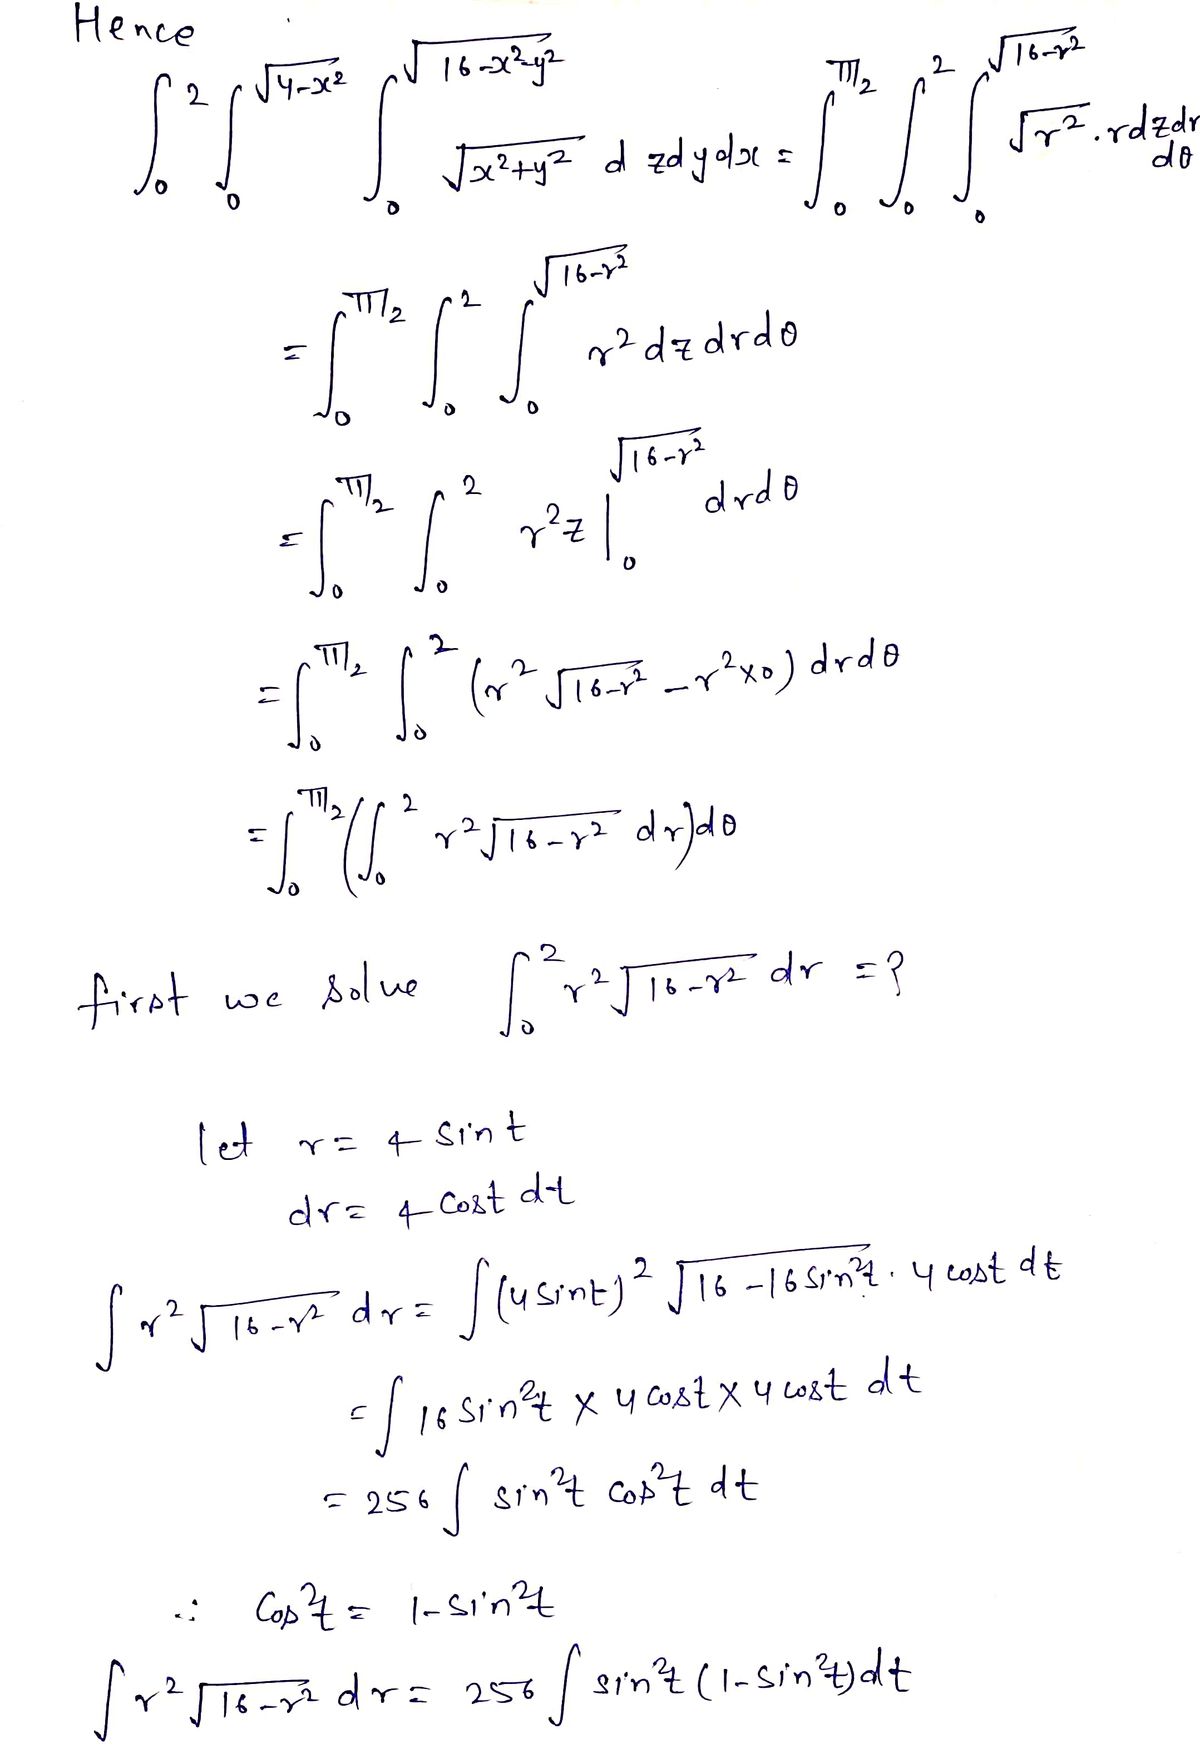 Hence
∫₀² ∫₀^√(4-x²) ∫₀^√(16-x²-y²) √(x²+y²) d zdydx = ∫₀^π/2 ∫₀² ∫₀^√(16-r²) √(r²) . rdzdr dθ
= ∫₀^π/2 ∫₀² ∫₀^√(16-r²) r² dz drdθ
= ∫₀^π/2 ∫₀² r²z |₀^√(16-r²) drdθ
= ∫₀^π/2 ∫₀² (r² √(16-r²) - r²×0) drdθ
= ∫₀^π/2 (∫₀² r² √(16-r²) dr)dθ
first we solve ∫₀² r² √(16-r²) dr = ?
let r = 4 sin t
dr = 4 cost dt
∫ r² √(16-r²) dr = ∫ (4 sint)² √(16-16 sin²t) . 4 cost dt
= ∫ 16 sin²t × 4 cost × 4 cost dt
= 256 ∫ sin²t cos²t dt
∵ cos²t = 1- sin²t
∫ r² √(16-r²) dr = 256 ∫ sin²t (1- sin²t) dt